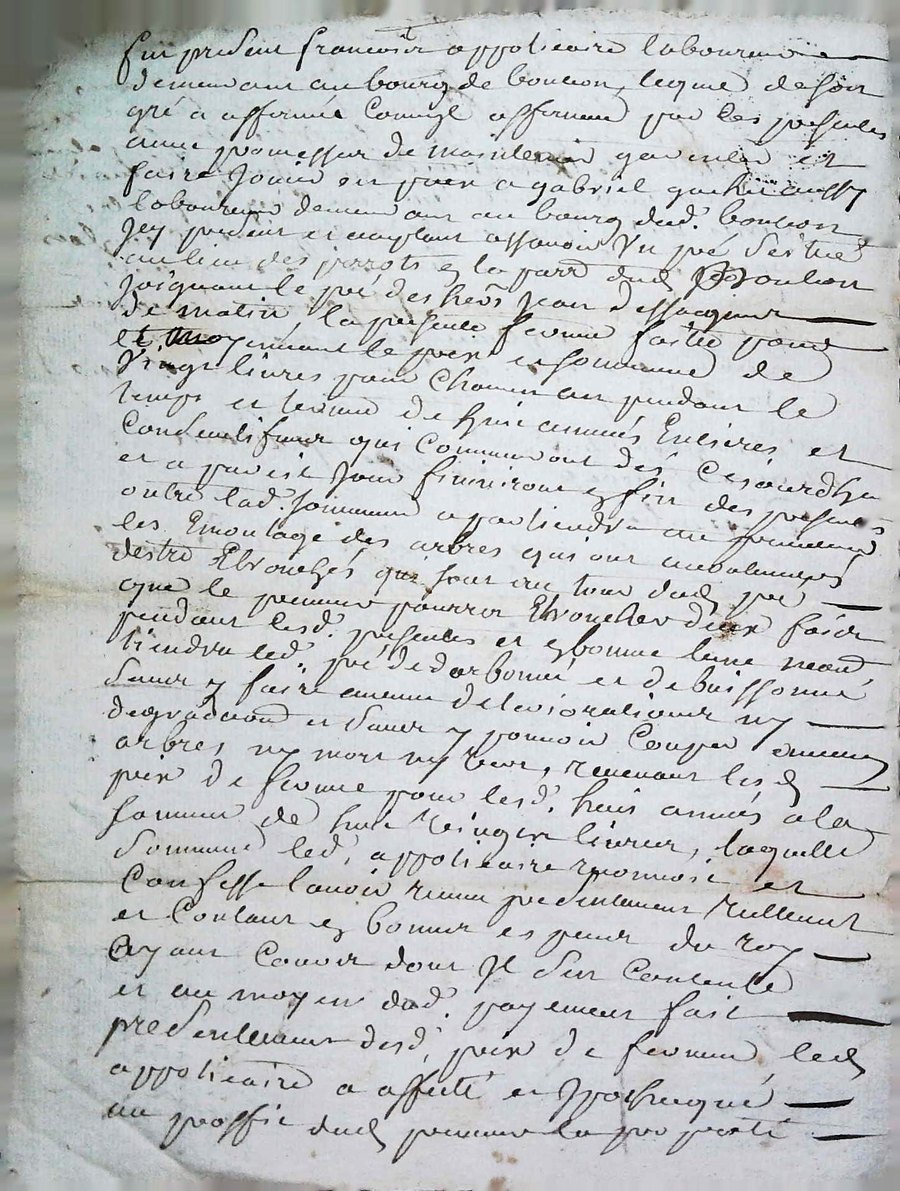 fut present francois appoticaire laboureur
demeurant au bourg de boulon, lequel de son
gré a affermé Comme afferme par les presentes
avec promesse de maintenir garentir et
faire Jouir en paix a gabriel aussy
laboureur demeurant au bourg dud. boulon
Icy present et acceptant assavoir Un pré situé
au lieu des perrots en la parr dud Boulon
Joignant le pré des heõrs Jean
de matin la presente ferme faitte pour
et moyennant le prix et somme de
Vingt livres pour Chacun an pendant le
temps et terme de huit années Entieres et
Consecutifves qui Commencent dés Cejourdhuy
et a pareil Jour finiront en fin des presentes
outre lad. somme apartiendra au preneur
les Emontage des arbres qui ont accoutumés
destre Ebrouchés qui sont au tour dud pré
que le preneur pourra Ebroucher deux fois
pendant lesd. presentes et en bonne lune
tiendra led. pré et debuissonné
sans y faire aucune deteriorations ny
degradaons et sans y pouvoir Couper aucuns
arbres ny mort ny vert, revenant lesd
prix de ferme pour lesd. huit années a la
somme de huit vingts livres, laquelle
somme led. appoticaire reconnoit et
Confesse lavoir receu presentement reellement
et Contant en bonnes especes du roy
ayant Cours dont Il sen Contente
et au moyen dud. payement fait
presentement desd. prix de ferme, led
appoticaire a affecté et Ipothequé
au proffit dud preneur la proprieté